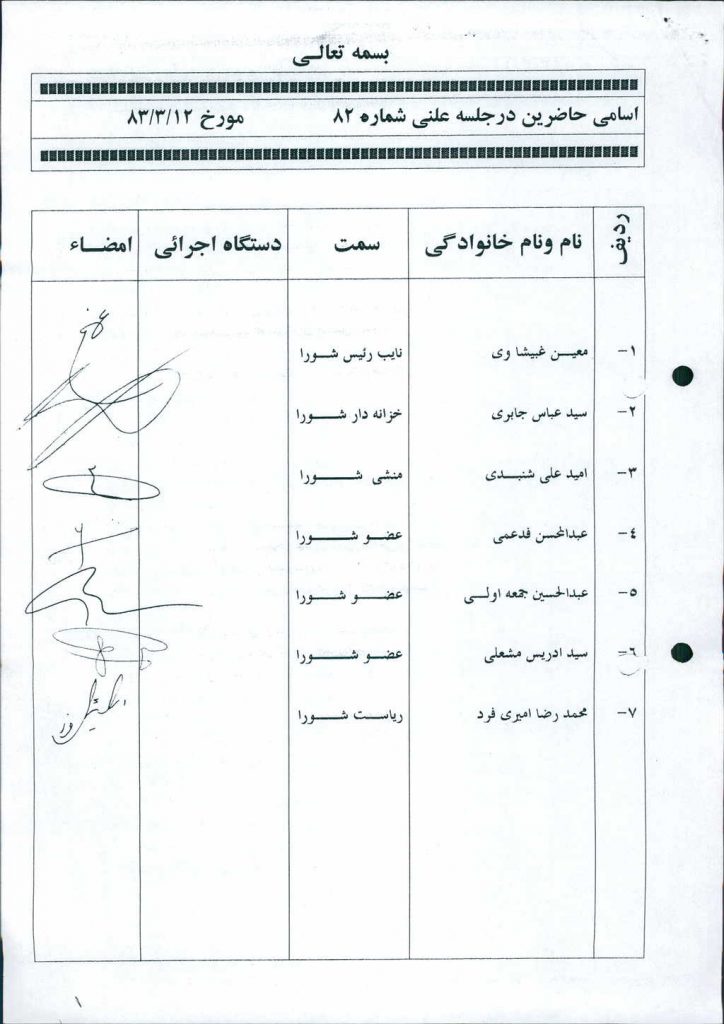 بسمه تعالی
اسامی حاضرین در جلسه علنی شماره ۸۲ مورخ ۸۳/۳/۱۲
ردیف نام ونام خانوادگی سمت دستگاه اجرائی امضاء
۱- معین غبیشاوی نایب رئیس شورا
۲- سید عباس جابری خزانه دار شورا
۳- امید علی شنبدی منشی شورا
۴- عبدالمحسن فدعمی عضو شورا
۵- عبدالحسین جمعه اولی عضو شورا
۶- سید ادریس مشعلی عضو شورا
۷- محمد رضا امیری فرد ریاست شورا
۱